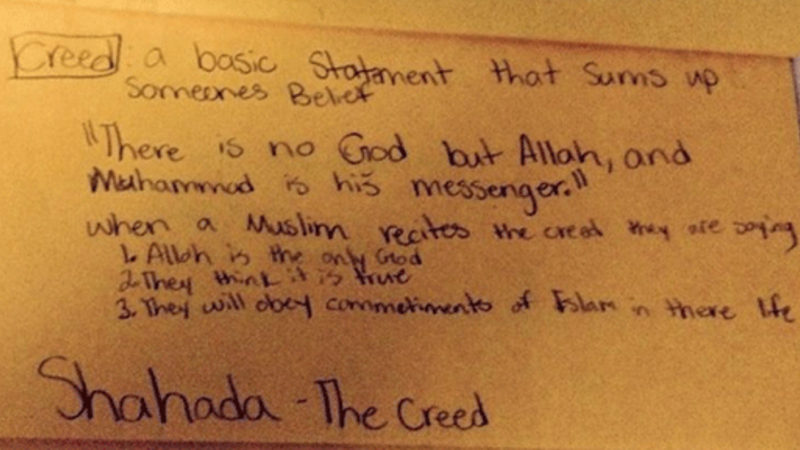 Creed: a basic Statment that sums up
Someones Belief
"There is no God but Allah, and
Muhammad is his messenger."
when a Muslim recites the creed they are saying
1. Allah is the only God
2. They think it is true
3. They will obey commetiments of Islam in there life
Shahada - The Creed